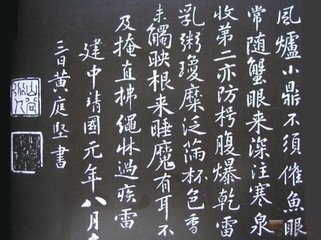 風爐小鼎不須催魚眼
常随蟹眼来深注寒泉
收第二亦防枵腹爆乾雷
乳粥瓊糜泛滿杯色香
味觸映根来睡魔有耳不
及掩直拂繩牀過疾雷
建中靖國元年八月十
三日黃庭堅書
山谷道人